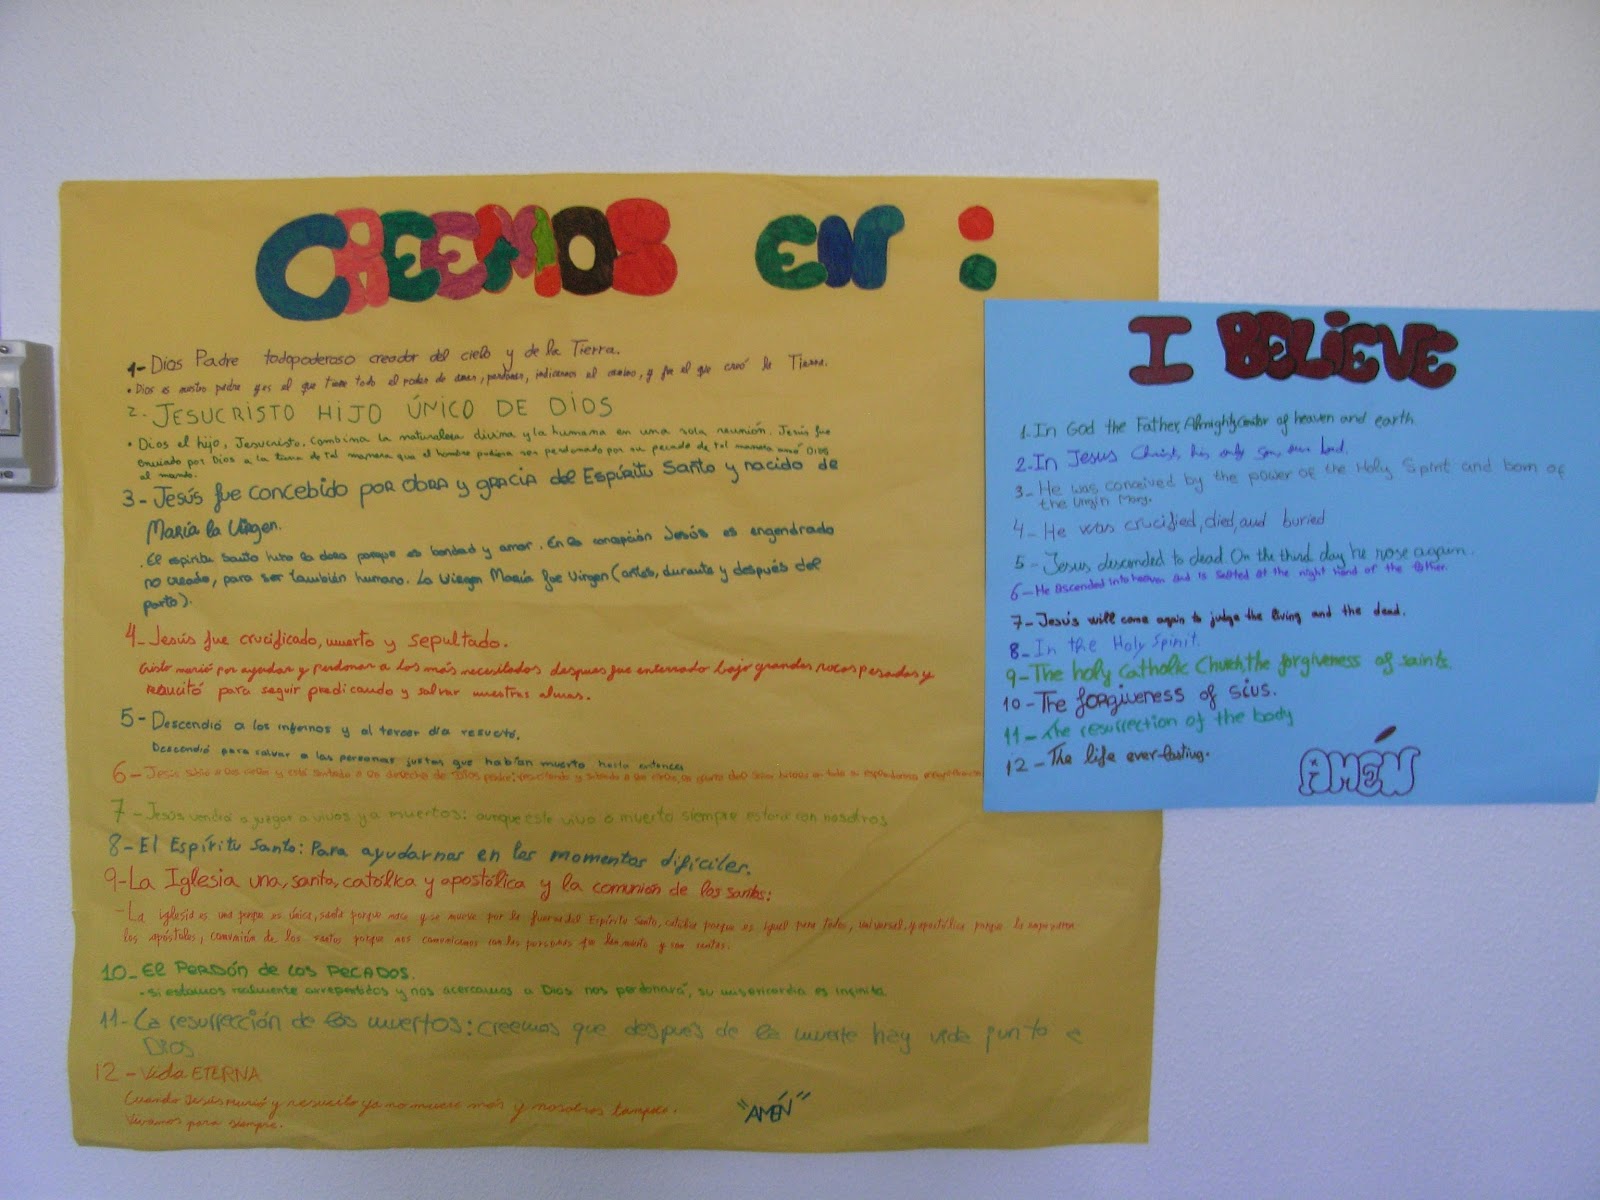 CREEMOS EN :
1- Dios Padre todopoderoso creador del cielo y de la Tierra.
• Dios es nuestro padre y es el que tiene todo el poder de amar, perdonar, indicarnos el camino, y fue el que creó la Tierra.
2. JESUCRISTO HIJO ÚNICO DE DIOS
• Dios el hijo, Jesucristo. Combina la naturaleza divina y la humana en una sola reunión. Jesús fue
enviado por Dios a la tierra de tal manera que el hombre pudiera ser perdonado por su pecado de tal manera amó Dios
al mundo.
3- Jesús fue concebido por obra y gracia del Espíritu Santo y nacido de
María la Virgen.
. El espíritu Santo hizo la obra porque es bondad y amor. En la concepción Jesús es engendrado
no creado, para ser también humano. La Virgen María fue Virgen (antes, durante y después del
parto).
4- Jesús fue crucificado, muerto y sepultado.
Cristo murió por ayudar y perdonar a los más necesitados despues fue enterrado bajo grandes rocas pesadas y
resucitó para seguir predicando y salvar nuestras almas.
5- Descendió a los infiernos y al tercer día resucitó.
Descendió para salvar a las personas justas que habían muerto hasta entonces
6- Jesús subió a los cielos y está sentado a la derecha de Dios padre:
7- Jesús vendrá a juzgar a vivos y a muertos: aunque este vivo o muerto siempre estará con nosotros
8- El Espíritu Santo: Para ayudarnos en los momentos difíciles.
9- La Iglesia una, santa, católica y apostólica y la comunión de los santos:
- La iglesia es una porque es única, santa porque nace y se mueve por la fuerza del Espíritu Santo, católica porque es igual para todos, universal, y apostólica porque la
los apóstoles, comunión de los santos porque nos comunicamos con las personas que han muerto y son santas.
10- El Perdón de los Pecados.
- si estamos realmente arrepentidos y nos acercamos a Dios nos perdonará, su misericordia es infinita.
11- La resurrección de los muertos: creemos que después de la muerte hay vida junto a
Dios
12- Vida ETERNA
Cuando Jesús murió y resucitó ya no muere más y nosotros tampoco.
Vivamos para siempre.
"AMÉN"
I BELIEVE
1. In God the Father, Almighty Creator of heaven and earth
2- In Jesus Christ, his only Son, our Lord.
3- He was conceived by the power of the Holy Spirit and born of
the Virgin Mary.
4- He was crucified, died, and buried
5- Jesus descended to dead. On the third day he rose again.
6- He ascended into heaven and is seated at the right hand of the father.
7- Jesús will come again to judge the living and the dead.
8- In the Holy Spirit.
9- The holy Catholic Church, the forgiveness of saints.
10- The forgiveness of sins.
11- The resurrection of the body
12- The life ever-lasting.
AMÉN